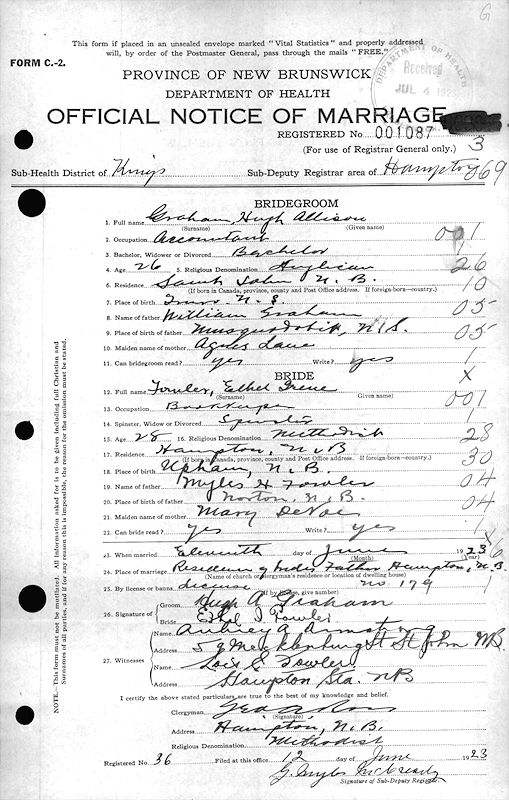 G
This form if placed in an unsealed envelope marked "Vital Statistics" and properly addressed
will, by order of the Postmaster General, pass through the mails "FREE."
FORM C.-2.
PROVINCE OF NEW BRUNSWICK
DEPARTMENT OF HEALTH
DEPARTMENT OF HEALTH
Received
JUL 4
OFFICIAL NOTICE OF MARRIAGE
REGISTERED No. 001087
(For use of Registrar General only.) 3
Sub-Health District of Kings Sub-Deputy Registrar area of Hampton 69
BRIDEGROOM
1. Full name Graham, Hugh Allison
(Surname) (Given name)
2. Occupation Accountant 001
3. Bachelor, Widower or Divorced Bachelor 1
4. Age 26 5. Religious Denomination Anglican 26
6. Residence Saint John N. B. 10
(If born in Canada, province, county and Post Office address. If foreign-born—country.)
7. Place of birth Truro N. S.
8. Name of father William Graham 05
9. Place of birth of father Musquodoboit, N.S. 05
10. Maiden name of mother Agnes Lane
11. Can bridegroom read? yes Write? yes 1
BRIDE X
12. Full name Fowler, Ethel Irene
(Surname) (Given name)
13. Occupation Bookkeeper 001
14. Spinster, Widow or Divorced Spinster 1
15. Age 28 16. Religious Denomination Methodist 28
17. Residence Hampton, N.B 30
(If born in Canada, province, county and Post Office address. If foreign-born—country.)
18. Place of birth Upham, N.B.
19. Name of father Myles H Fowler 04
20. Place of birth of father Norton, N. B. 04
21. Maiden name of mother Mary DeVoe
22. Can bride read? yes Write? yes 1
23. When married Eleventh day of June 1923 6
(Month) (Year)
24. Place of marriage Residence of brides Father Hampton, N.B.
(Name of church or clergyman's residence or location of dwelling house)
25. By license or banns license no 179
(If by license, give number)
26. Signature of Groom Hugh A. Graham
Bride Ethel I Fowler
27. Witnesses
Name Aubrey A
Address 59 Mecklenburg St St John NB.
Name Lois E Fowler
Address Hampton Sta. NB
I certify the above stated particulars are true to the best of my knowledge and belief.
Clergyman Geo A Ross
(Signature)
Address Hampton, N. B.
Religious Denomination Methodist
Registered No. 36 Filed at this office 12 day of June 1923
G. McCready
Signature of Sub-Deputy Registrar
NOTE.—This form must not be mutilated. All information asked for is to be given including full Christian and
Surnames of all parties, and if for any reason this is impossible, the reason for the omission must be stated.